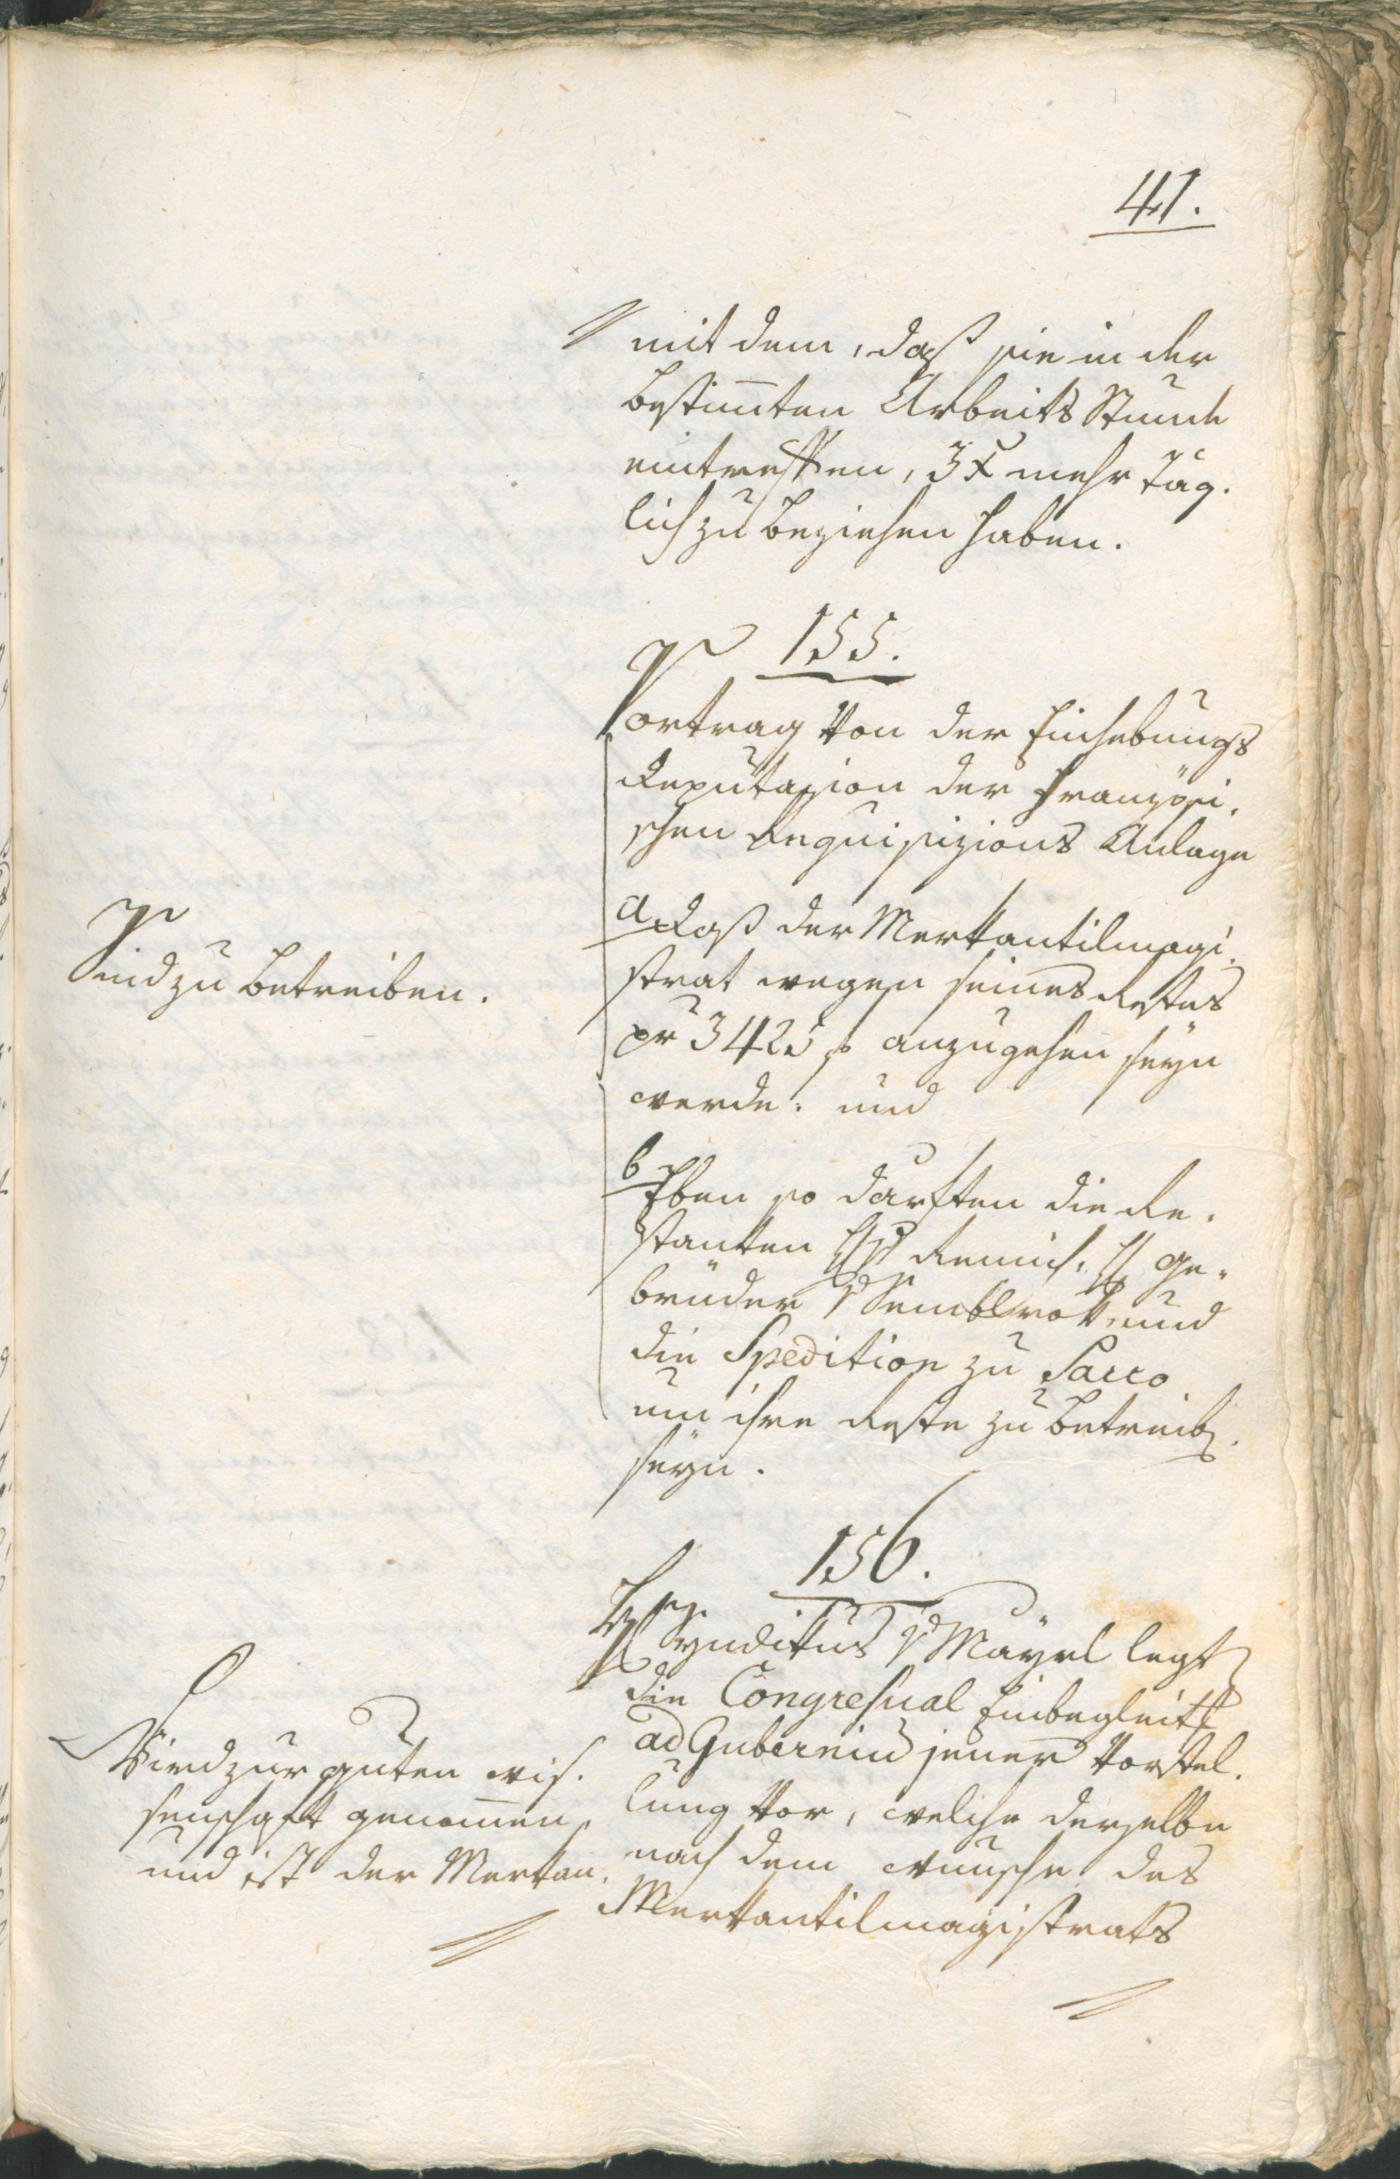 41.
mit dem, daß sie in der
bestim̅ten Arbeits Stunde
eintreffen, 3 x mehr täg.
lich zu beziehen haben.
155.
Vortrag von der Einhebungs
Deputazion der französi.
schen Requisizions Anlage
a daß der Merkantilmagi.
strat wegen seines Restes
pr 3425 f anzugehen seyn
werde. und
Sind zu betreiben.
b Eben so darften die Re.
stanten H. Ge.
brüder und
die Spedition zu Sacco
um ihre Reste zu betreiben
seyn.
156.
H. Syndikus v Mayrl legt
die Congressual Einbegleitt
ad Guberniu̅ jener Vorstel.
lung vor, welche derselbe
nach dem wunsche des
Merkantilmagistrats
Wird zur guten wis.
senschaft genom̅en,
und ist der Merkan.